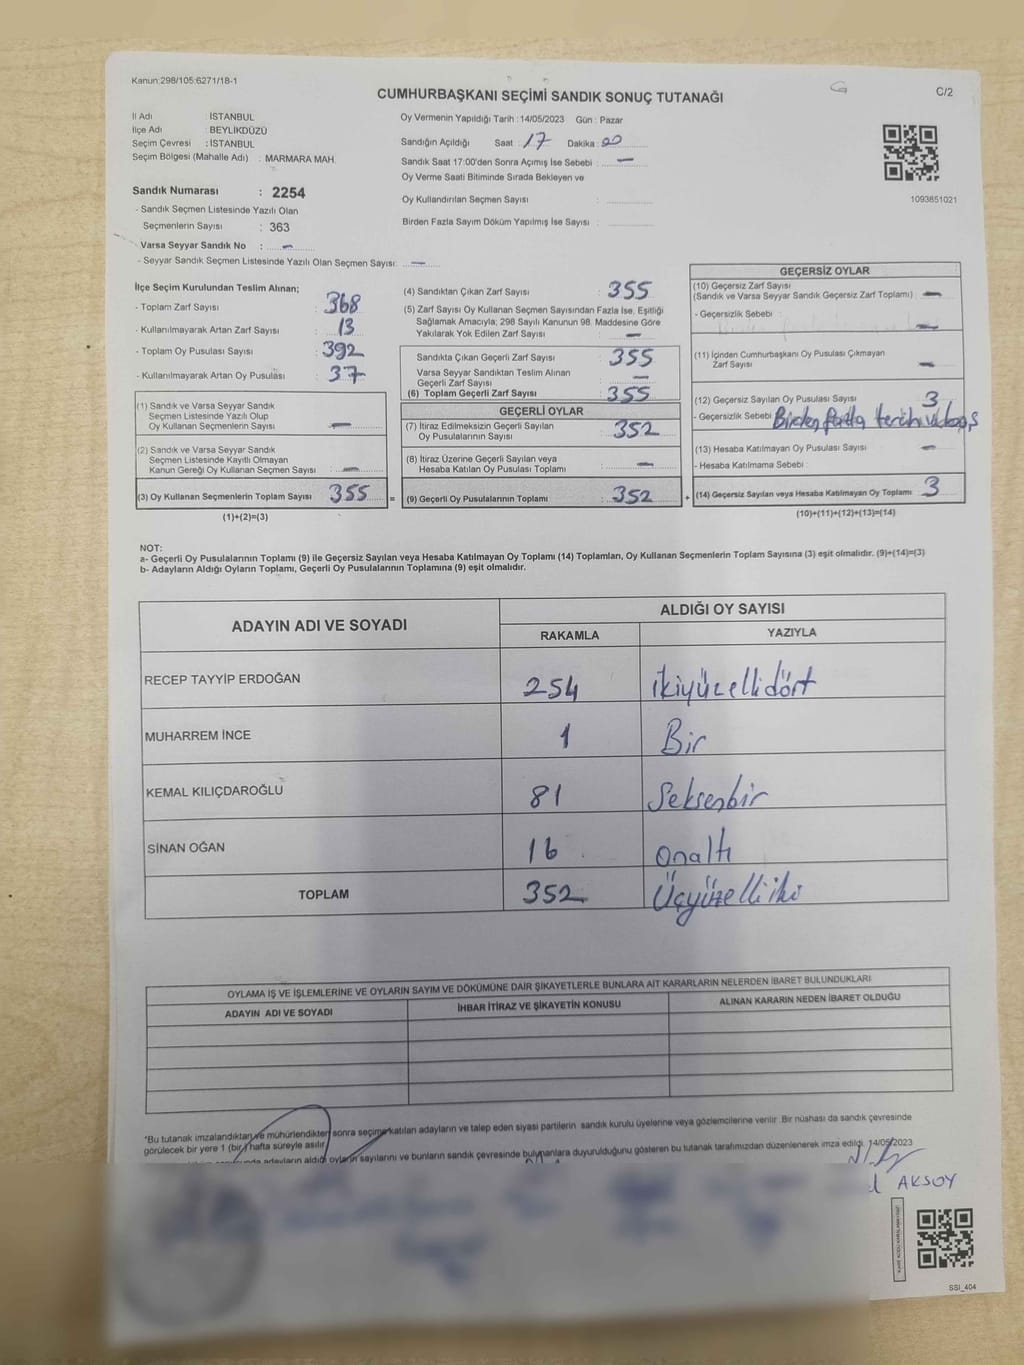 Kanun:298/105:6271/18-1
CUMHURBAŞKANI SEÇİMİ SANDIK SONUÇ TUTANAĞI
C/2
İl Adı : İSTANBUL
İlçe Adı : BEYLİKDÜZÜ
Seçim Çevresi : İSTANBUL
Seçim Bölgesi (Mahalle Adı) : MARMARA MAH.
Sandık Numarası : 2254
- Sandık Seçmen Listesinde Yazılı Olan
Seçmenlerin Sayısı : 363
Varsa Seyyar Sandık No : -
- Seyyar Sandık Seçmen Listesinde Yazılı Olan Seçmen Sayısı: -
Oy Vermenin Yapıldığı Tarih :14/05/2023 Gün : Pazar
Sandığın Açıldığı Saat : 17 Dakika : 00
Sandık Saat 17:00'den Sonra Açımış İse Sebebi : -
Oy Verme Saati Bitiminde Sırada Bekleyen ve
Oy Kullandırılan Seçmen Sayısı :
Birden Fazla Sayım Döküm Yapılmış İse Sayısı :
1093851021
İlçe Seçim Kurulundan Teslim Alınan;
- Toplam Zarf Sayısı : 368
- Kullanılmayarak Artan Zarf Sayısı : 13
- Toplam Oy Pusulası Sayısı : 392
- Kullanılmayarak Artan Oy Pusulası : 37
(1) Sandık ve Varsa Seyyar Sandık
Seçmen Listesinde Yazılı Olup
Oy Kullanan Seçmenlerin Sayısı : -
(2) Sandık ve Varsa Seyyar Sandık
Seçmen Listesinde Kayıtlı Olmayan
Kanun Gereği Oy Kullanan Seçmen Sayısı : -
(3) Oy Kullanan Seçmenlerin Toplam Sayısı : 355 =
(1)+(2)=(3)
(4) Sandıktan Çıkan Zarf Sayısı : 355
(5) Zarf Sayısı Oy Kullanan Seçmen Sayısından Fazla İse, Eşitliği
Sağlamak Amacıyla; 298 Sayılı Kanunun 98. Maddesine Göre
Yakılarak Yok Edilen Zarf Sayısı : -
Sandıkta Çıkan Geçerli Zarf Sayısı : 355
Varsa Seyyar Sandıktan Teslim Alınan
Geçerli Zarf Sayısı : -
(6) Toplam Geçerli Zarf Sayısı : 355
GEÇERLİ OYLAR
(7) İtiraz Edilmeksizin Geçerli Sayılan
Oy Pusulalarının Sayısı : 352
(8) İtiraz Üzerine Geçerli Sayılan veya
Hesaba Katılan Oy Pusulası Toplamı : -
(9) Geçerli Oy Pusulalarının Toplamı : 352 +
GEÇERSİZ OYLAR
(10) Geçersiz Zarf Sayısı
(Sandık ve Varsa Seyyar Sandık Geçersiz Zarf Toplamı) : -
- Geçersizlik Sebebi : -
(11) İçinden Cumhurbaşkanı Oy Pusulası Çıkmayan
Zarf Sayısı : -
(12) Geçersiz Sayılan Oy Pusulası Sayısı : 3
- Geçersizlik Sebebi : Birden fazla tercih
(13) Hesaba Katılmayan Oy Pusulası Sayısı : -
- Hesaba Katılmama Sebebi :
(14) Geçersiz Sayılan veya Hesaba Katılmayan Oy Toplamı : 3
(10)+(11)+(12)+(13)=(14)
NOT:
a- Geçerli Oy Pusulalarının Toplamı (9) ile Geçersiz Sayılan veya Hesaba Katılmayan Oy Toplamı (14) Toplamları, Oy Kullanan Seçmenlerin Toplam Sayısına (3) eşit olmalıdır. (9)+(14)=(3)
b- Adayların Aldığı Oyların Toplamı, Geçerli Oy Pusulalarının Toplamına (9) eşit olmalıdır.
ADAYIN ADI VE SOYADI
ALDIĞI OY SAYISI
RAKAMLA YAZIYLA
RECEP TAYYİP ERDOĞAN 254 ikiyüzellidört
MUHARREM İNCE 1 Bir
KEMAL KILIÇDAROĞLU 81 Seksenbir
SİNAN OĞAN 16 onaltı
TOPLAM 352 Üçyüzelliiki
OYLAMA İŞ VE İŞLEMLERİNE VE OYLARIN SAYIM VE DÖKÜMÜNE DAİR ŞİKAYETLERLE BUNLARA AİT KARARLARIN NELERDEN İBARET BULUNDUKLARI
ADAYIN ADI VE SOYADI İHBAR İTİRAZ VE ŞİKAYETİN KONUSU ALINAN KARARIN NEDEN İBARET OLDUĞU
*Bu tutanak imzalandıktan ve mühürlendikten sonra seçime katılan adayların ve talep eden siyasi partilerin sandık kurulu üyelerine veya gözlemcilerine verilir. Bir nüshası da sandık çevresinde
görülecek bir yere 1 (bir) hafta süreyle asılır.
adayların aldığı oyların sayılarını ve bunların sandık çevresinde bulunanlara duyurulduğunu gösteren bu tutanak tarafımızdan düzenlenerek imza edildi. 14/05/2023
AKSOY
SSI_404